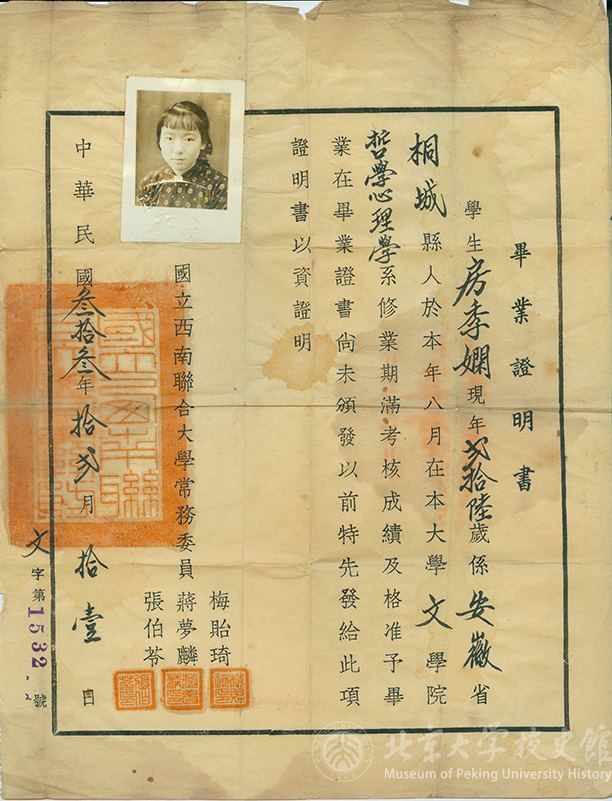 畢業證明書
學生房季嫻現年弍拾陸歲係安徽省
桐城縣人於本年八月在本大學文學院
哲學心理學系修業期滿考核成績及格准予畢
業在畢業證書尚未頒發以前特先發給此項
證明書以資證明
國立西南聯合大學常務委員
梅貽琦
蔣夢麟
張伯苓
中華民國叁拾叁年拾弍月拾壹日
文字第1532號
北京大学校史館
Museum of Peking University History